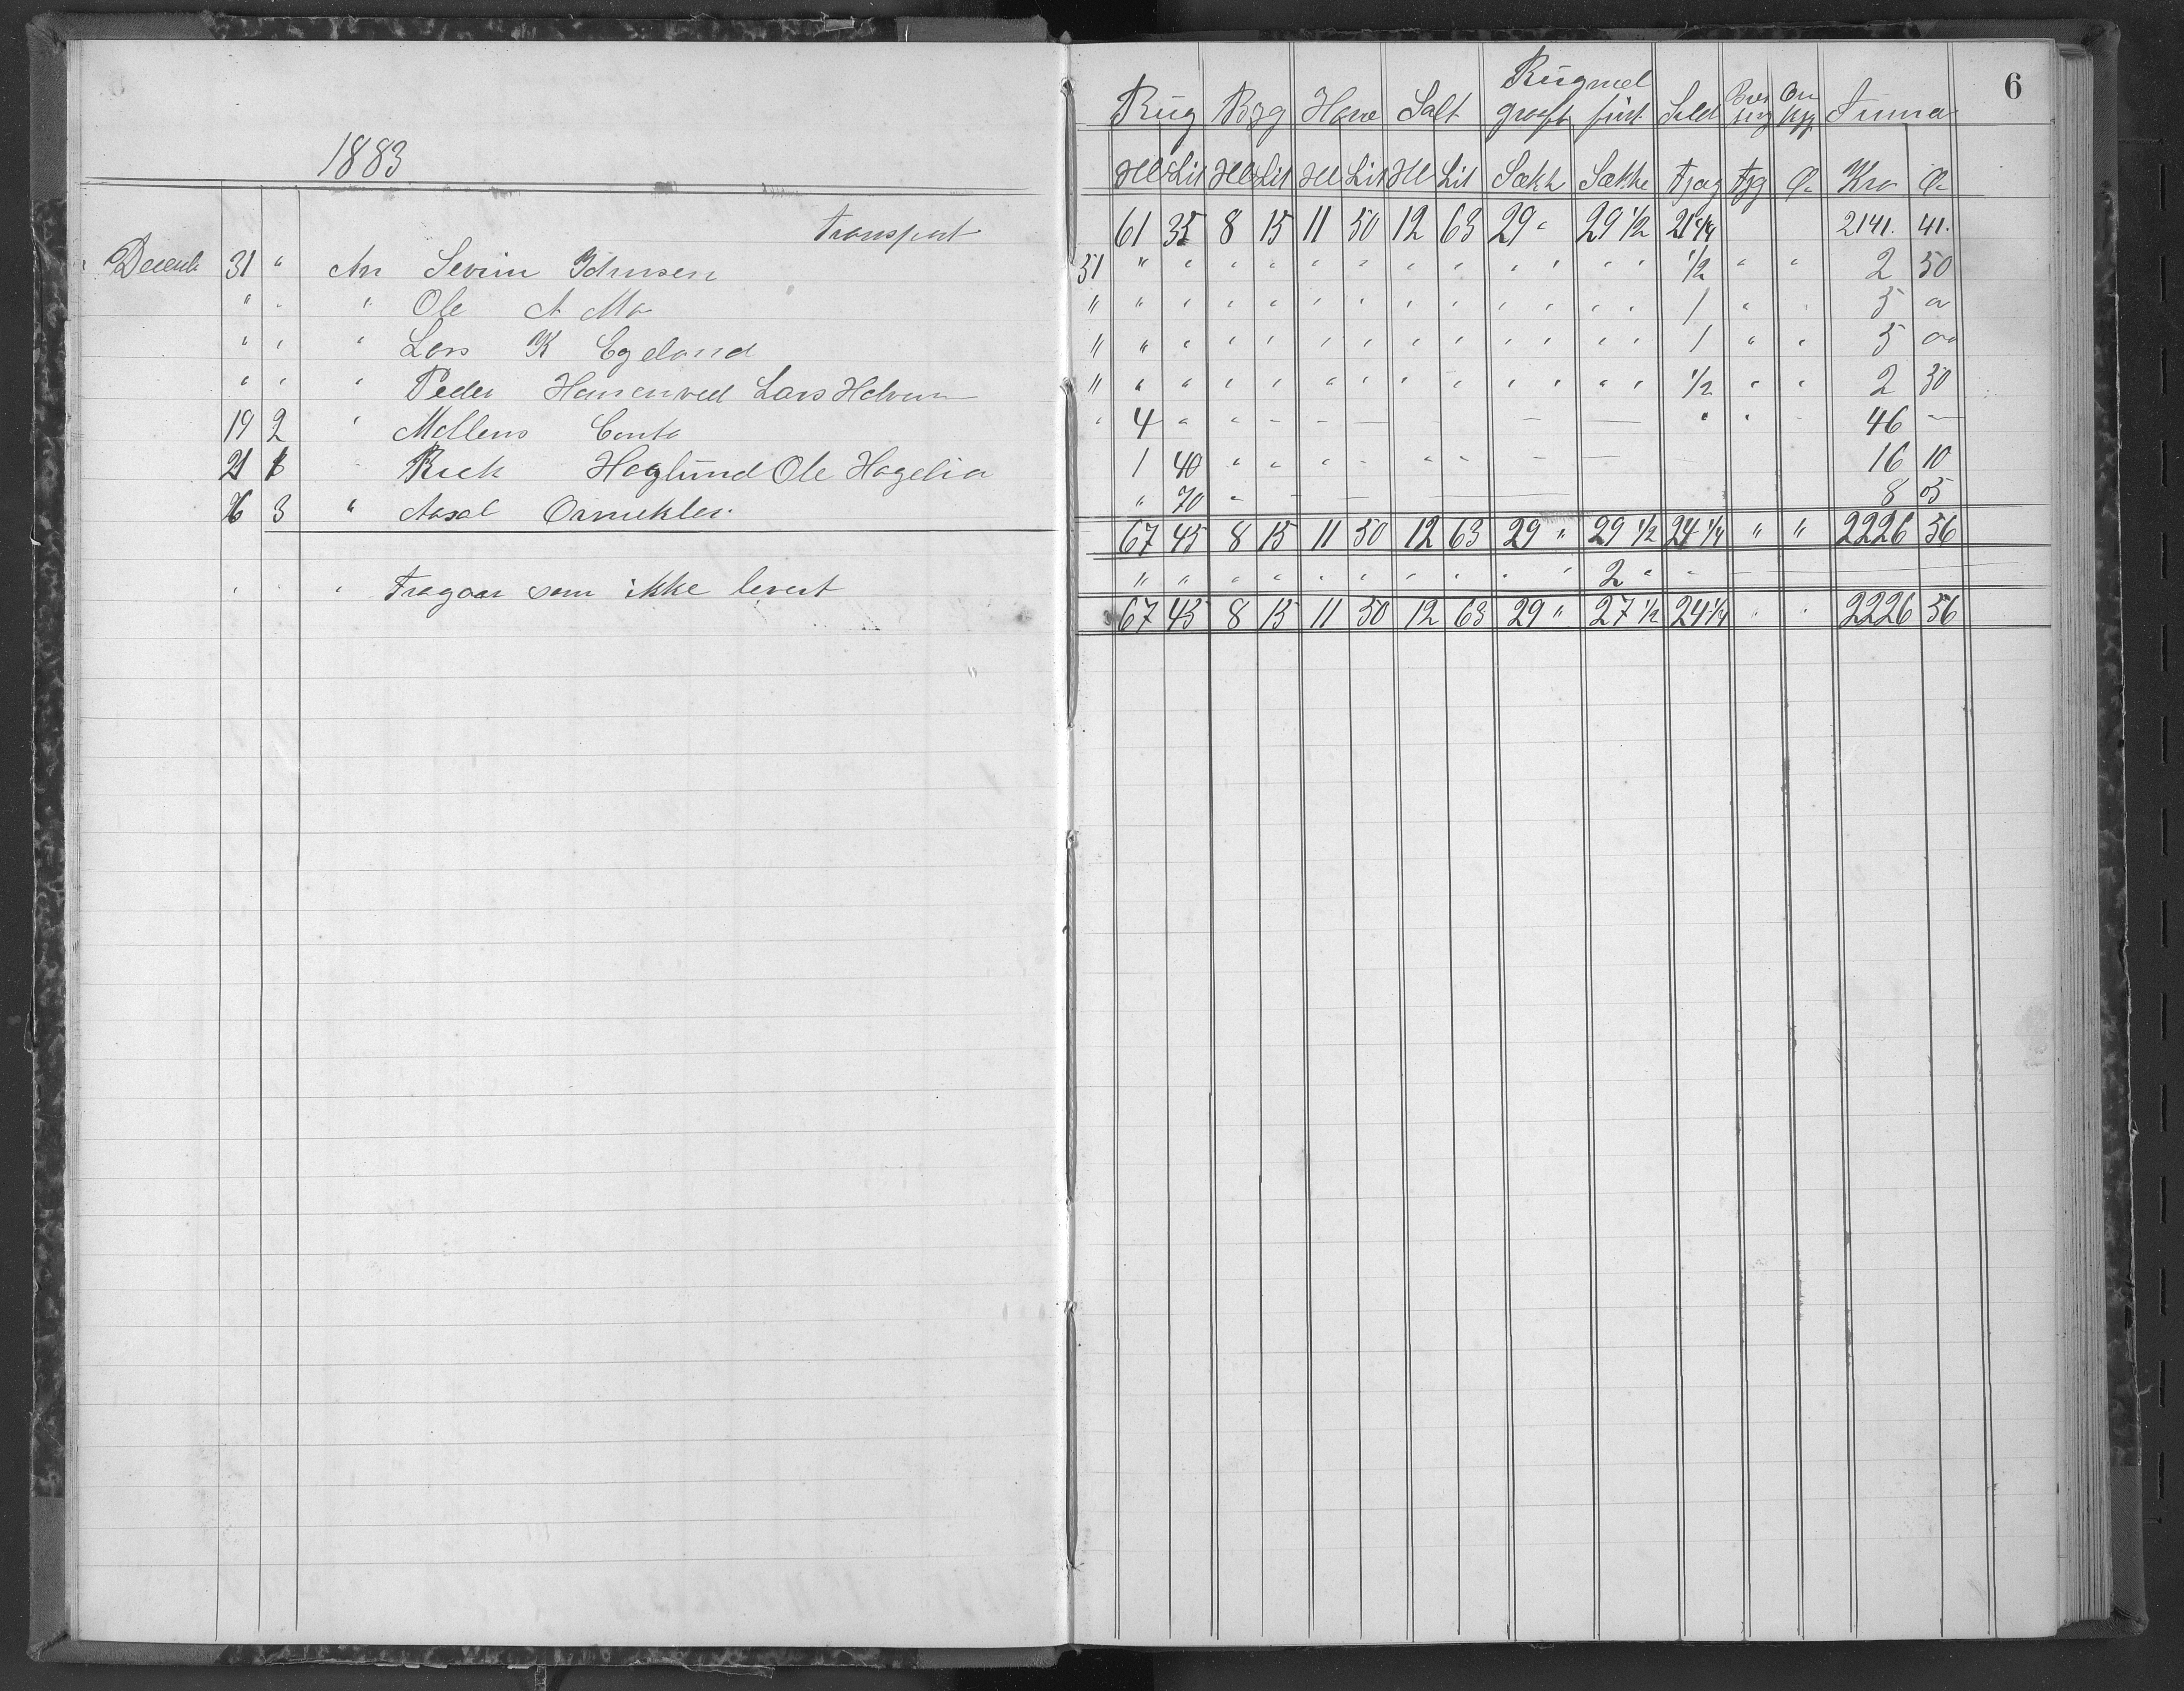 6
1883
Rug Byg Havre Salt Rugmel groft fint Sild Summa
Hl Lit Hl Lit Hl Lit Hl Lit Sække Sække Kro
transport 61 35 8 15 11 50 12 63 29 " 29 1/2 21 1/4 2141. 41.
Decemb 31 " An Severin Johnsen 31 " " " " " " " " " " " " 1/2 " " 2 50
" " " Ole A Mo " " " " " " " " " " " " " 1 " " 5 "
" " " Lars K Egeland " " " " " " " " " " " " " 1 " " 5 "
" " " Peder Hansen ved Lars Halvorsen " " " " " " " " " " " " " 1/2 " " 2 50
19 2 " Møllens Conto " 4 " " " - — - — " " - 46 —
21 1 " Hoglund Ole Hagelia 1 40 " " " - " " — — 16 10
26 3 " Aasal " 70 " - — — 8 05
67 45 8 15 11 50 12 63 29 " 29 1/2 24 1/4 " " 2226 56
" " " fragaar som ikke levert " " " " " " " " " " 2 " "
67 45 8 15 11 50 12 63 29 " 27 1/2 24 1/4 " " 2226 56